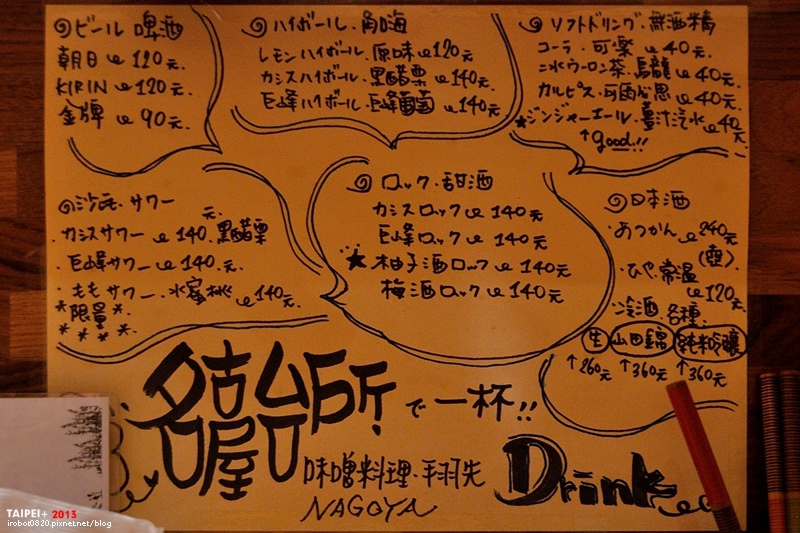 ビール 啤酒
朝日 120元.
KIRIN 120元.
金牌 90元.
ハイボール.角嗨
レモンハイボール.原味 120元.
カシスハイボール.黑醋栗 140元.
巨峰ハイボール.巨峰葡萄 140元.
ソフトドリング.無酒精
コーラ.可樂 40元.
冰ウーロン茶.烏龍 40元.
カルピス.可爾必思 40元.
★ジンジャーエール.薑汁汽水 40元
↑good!!
沙瓦.サワー
カシスサワー 140元.黑醋栗
巨峰サワー 140元.
ももサワー.水蜜桃 140元.
*限量*
* * * *
ロック.甜酒
カシスロック 140元
巨峰ロック 140元
★柚子酒ロック 140元
梅酒ロック 140元
日本酒
あつかん 240元
(壺).
ひや.常溫
120元.
冷酒.各種.
生 山田錦 純米吟釀
↑260元 ↑360元 ↑360元
名古屋台所 で一杯!!
味噌料理.手羽先
NAGOYA
Drink
TAIPEI+ 2013
irobot0820.pixnet.net/blog